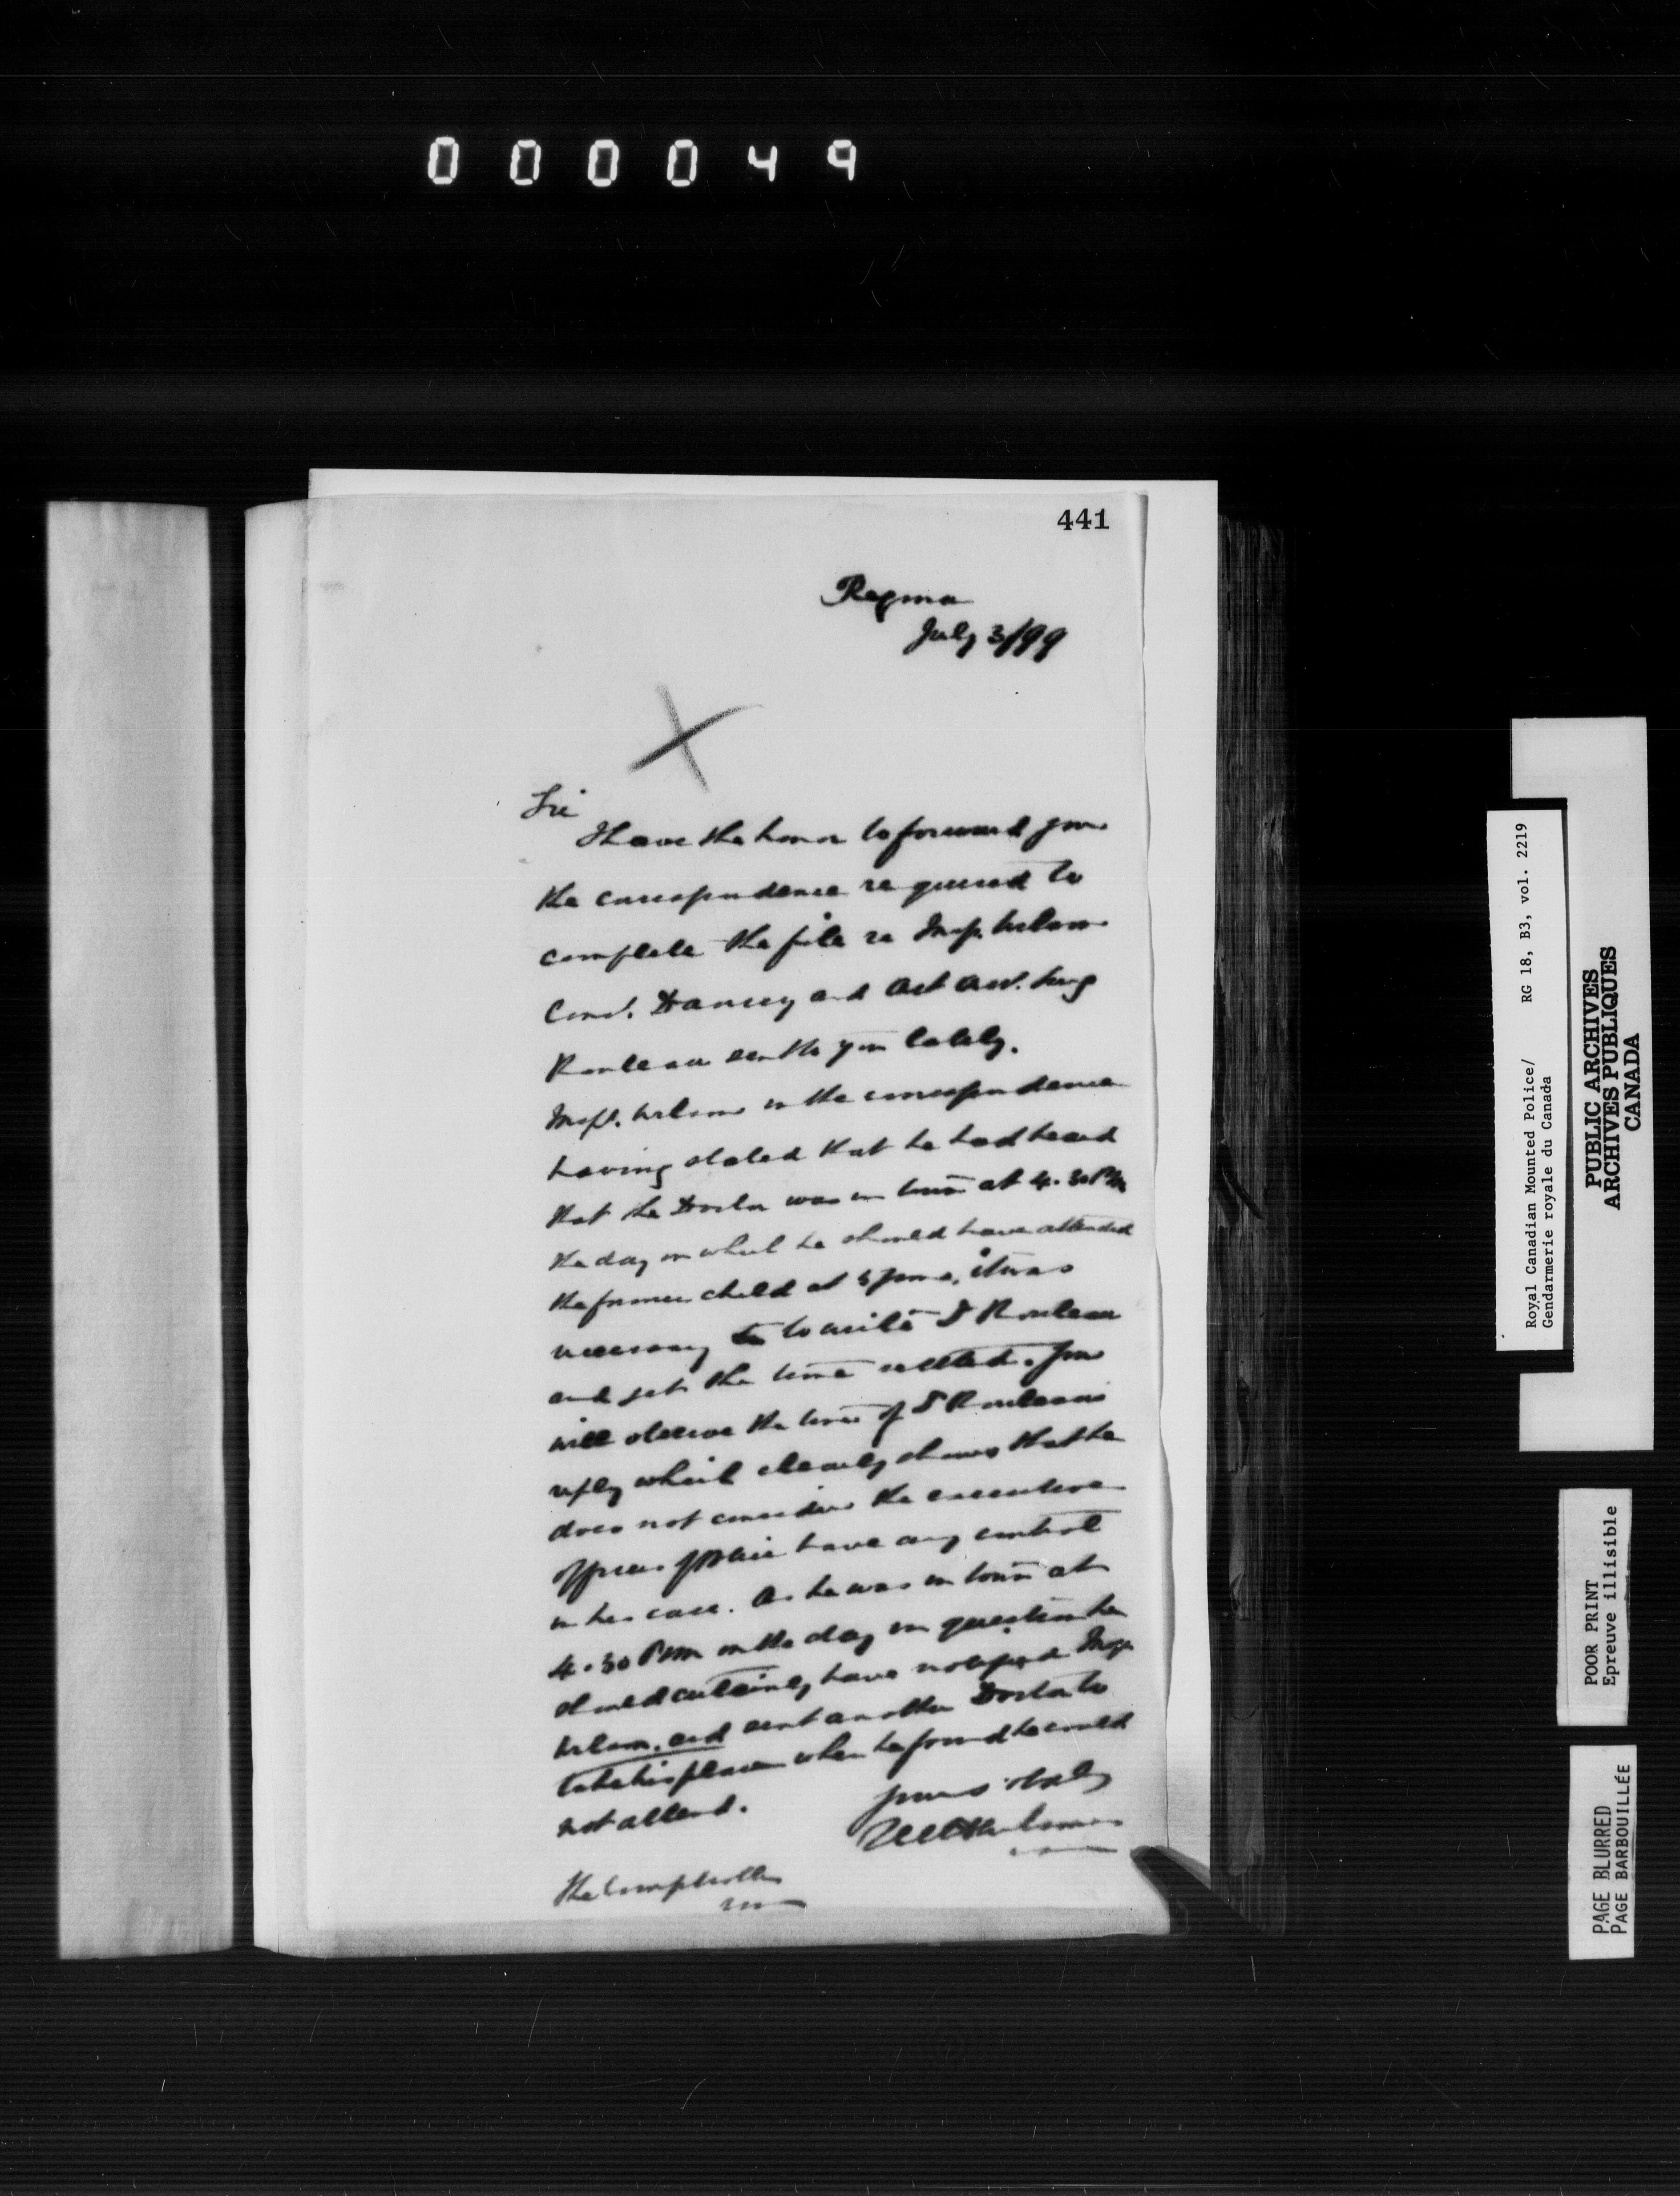 000049
441
Regina
July 3/99
Sir
I have the honor to forward you
the correspondence required to
complete the file re Insp. Wilson
Const. Dancey and Act Asst. Surg
Rouleau sent to you lately.
Insp. Wilson in the correspondence
having stated that he had heard
that the Doctor was in town at 4.30 PM
the day on which he should have attended
the former child at 5 it was
necessary to write D Rouleau
and get the time settled. You
will observe the tone of D Rouleaus
reply which clearly shows that he
does not consider the executive
officers have any control
in his case. As he was in town at
4.30 PM on the day in question he
should certainly have notified Insp
Wilson, and sent another Doctor to
take his place when he found he could
not attend.
Yours
The Comptroller
Royal Canadian Mounted Police/ RG 18, B3, vol. 2219
Gendarmerie royale du Canada
PUBLIC ARCHIVES
ARCHIVES PUBLIQUES
CANADA
POOR PRINT
Epreuve illisible
PAGE BLURRED
PAGE BARBOUILLÉE